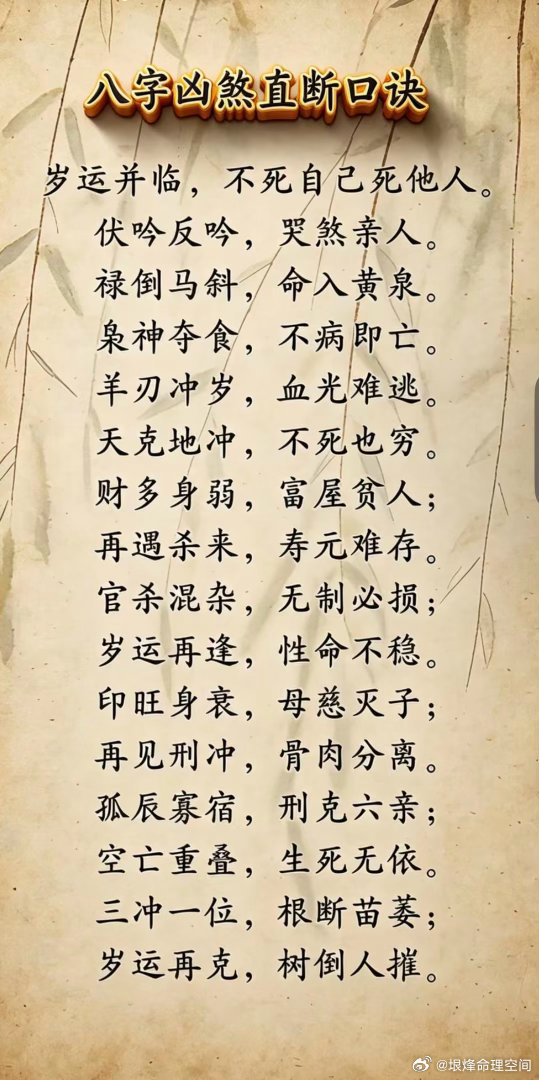 八字凶煞直断口诀
岁运并临，不死自己死他人。
伏吟反吟，哭煞亲人。
禄倒马斜，命入黄泉。
枭神夺食，不病即亡。
羊刃冲岁，血光难逃。
天克地冲，不死也穷。
财多身弱，富屋贫人；
再遇杀来，寿元难存。
官杀混杂，无制必损；
岁运再逢，性命不稳。
印旺身衰，母慈灭子；
再见刑冲，骨肉分离。
孤辰寡宿，刑克六亲；
空亡重叠，生死无依。
三冲一位，根断苗萎；
岁运再克，树倒人摧。
@垠烽命理空间